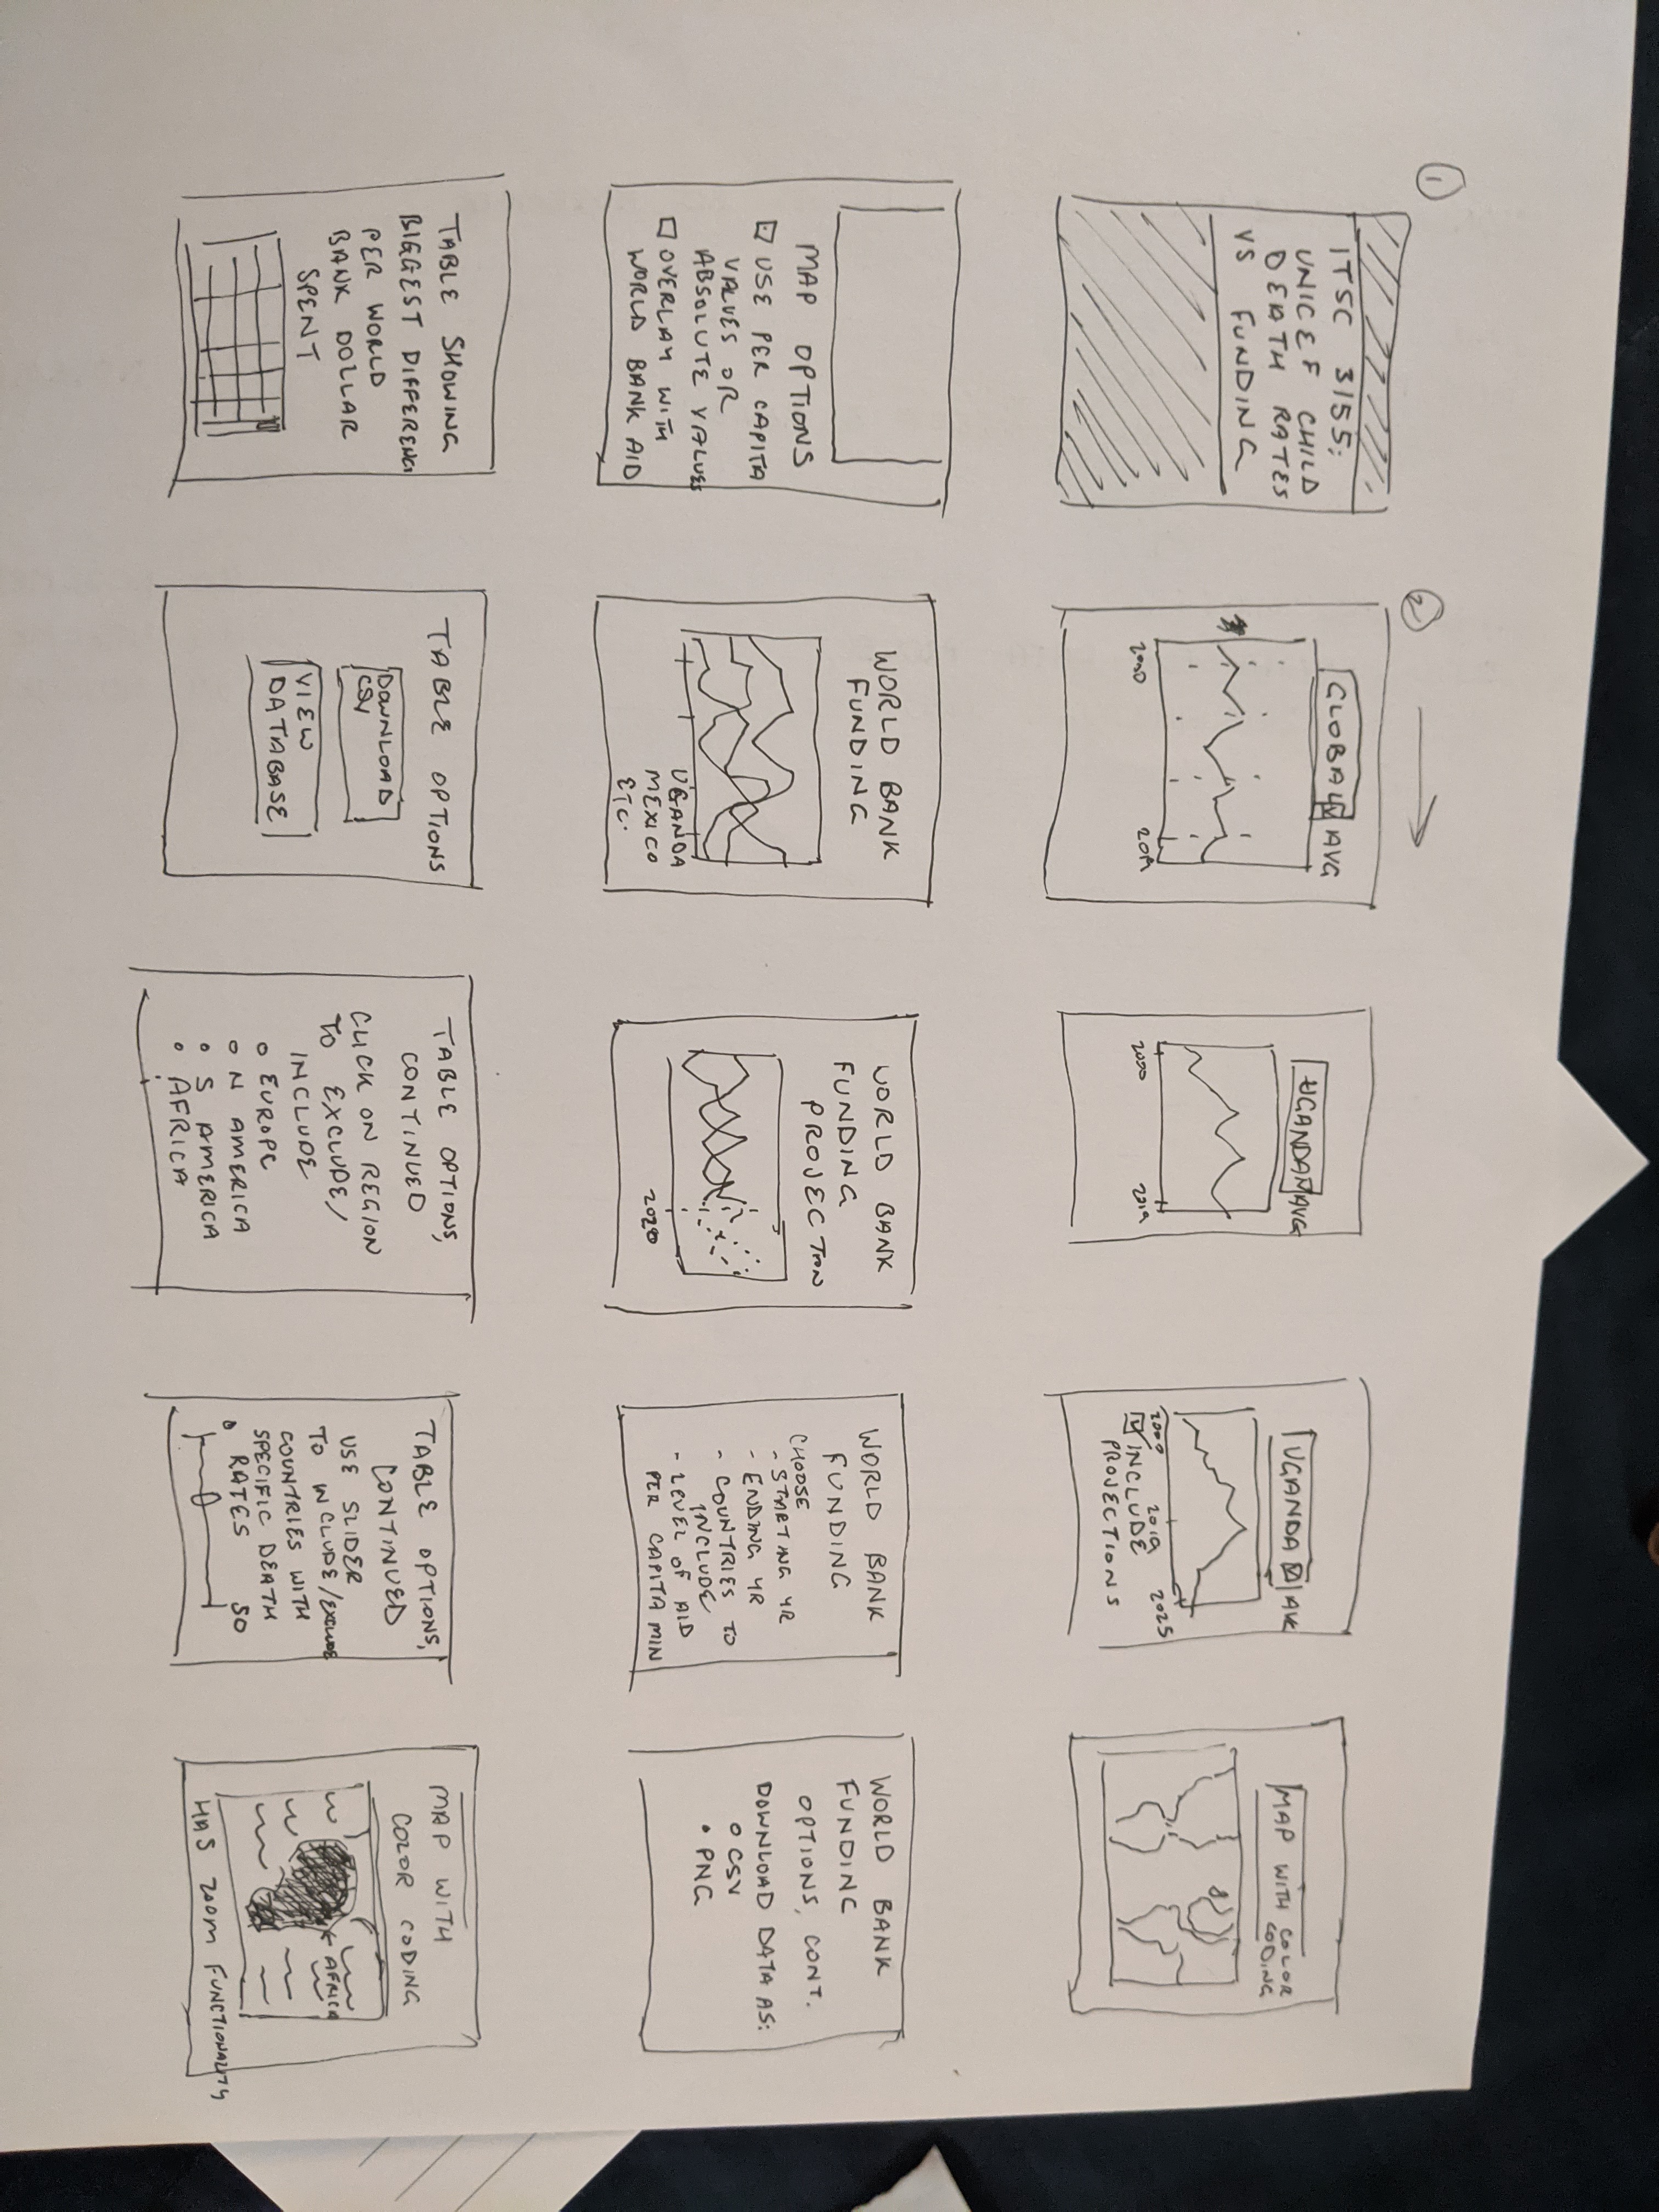 1
ITSC 3155:
UNICEF CHILD
DEATH RATES
VS FUNDING
2
GLOBAL AVG
2000
2019
UGANDA AVG
2000
2019
UGANDA
2000 2019 2025
INCLUDE
PROJECTIONS
MAP WITH COLOR
CODING
MAP OPTIONS
USE PER CAPITA
VALUES OR
ABSOLUTE VALUES
OVERLAY WITH
WORLD BANK AID
WORLD BANK
FUNDING
UGANDA
MEXICO
ETC.
WORLD BANK
FUNDING
PROJECTION
2020
WORLD BANK
FUNDING
CHOOSE
- STARTING YR
- ENDING YR
- COUNTRIES TO
INCLUDE
- LEVEL OF AID
PER CAPITA MIN
WORLD BANK
FUNDING
OPTIONS, CONT.
DOWNLOAD DATA AS:
• CSV
• PNG
TABLE SHOWING
BIGGEST DIFFERENCE
PER WORLD
BANK DOLLAR
SPENT
TABLE OPTIONS
DOWNLOAD
CSV
VIEW
DATABASE
TABLE OPTIONS,
CONTINUED
CLICK ON REGION
TO EXCLUDE/
INCLUDE
• EUROPE
• N AMERICA
• S AMERICA
• AFRICA
TABLE OPTIONS,
CONTINUED
USE SLIDER
TO INCLUDE/EXCLUDE
COUNTRIES WITH
SPECIFIC DEATH
RATES
0 50
MAP WITH
COLOR CODING
AFRICA
HAS ZOOM FUNCTIONALITY